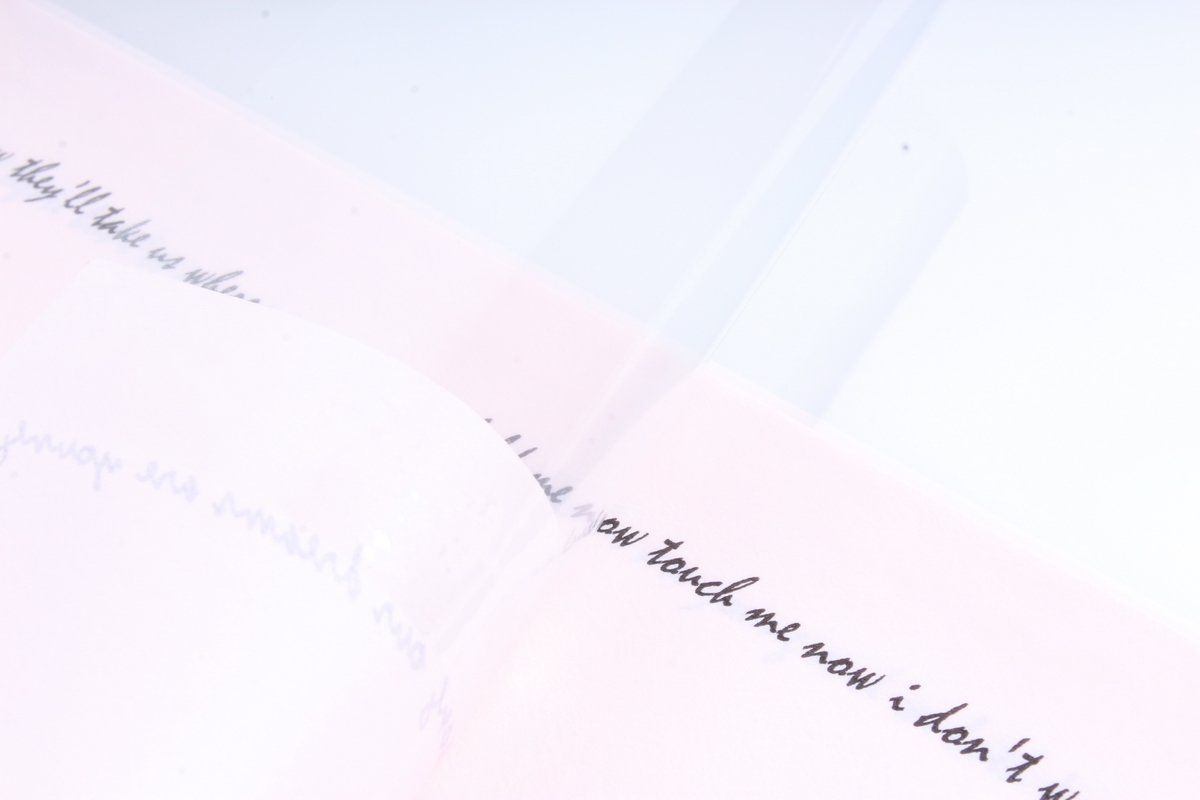 they'll take us where
me now touch me now i don't
our dreams are young